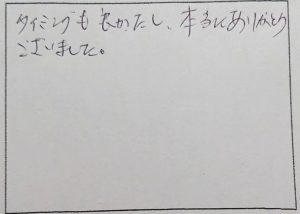 タイミングも良かたし、本当にありがとう
ございました。